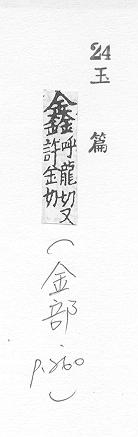 24 玉篇
鑫 呼龍切又
許金切
(金部 p.260)